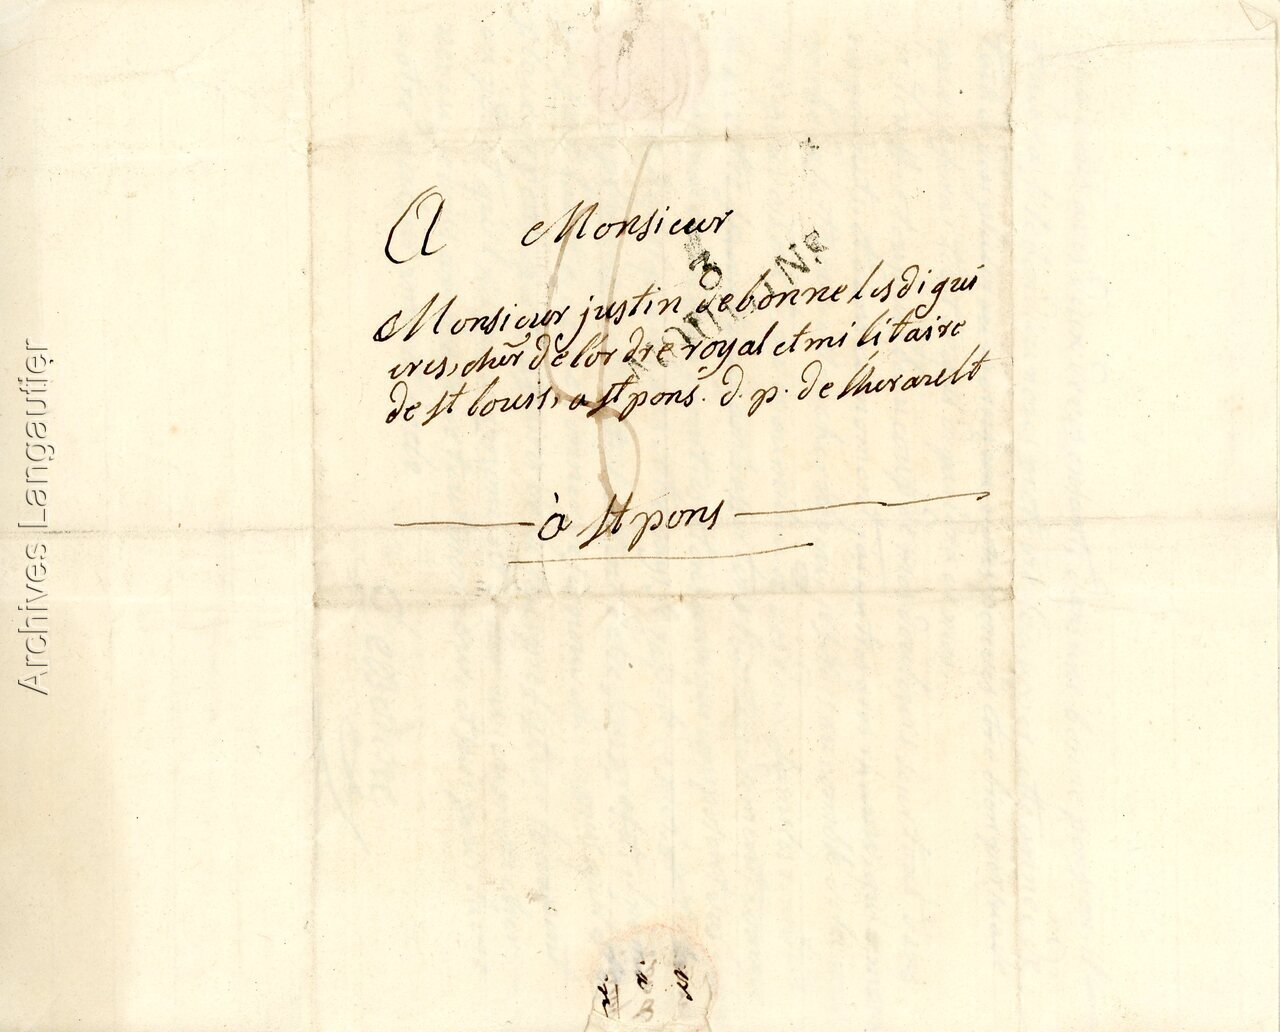 A Monsieur
3
MOULINS
Monsieur justin de bonne les digui
eres, cher de lordre royal et militaire
de st louis, a st pons. d. p. de lherault
à st pons
Archives Langautier